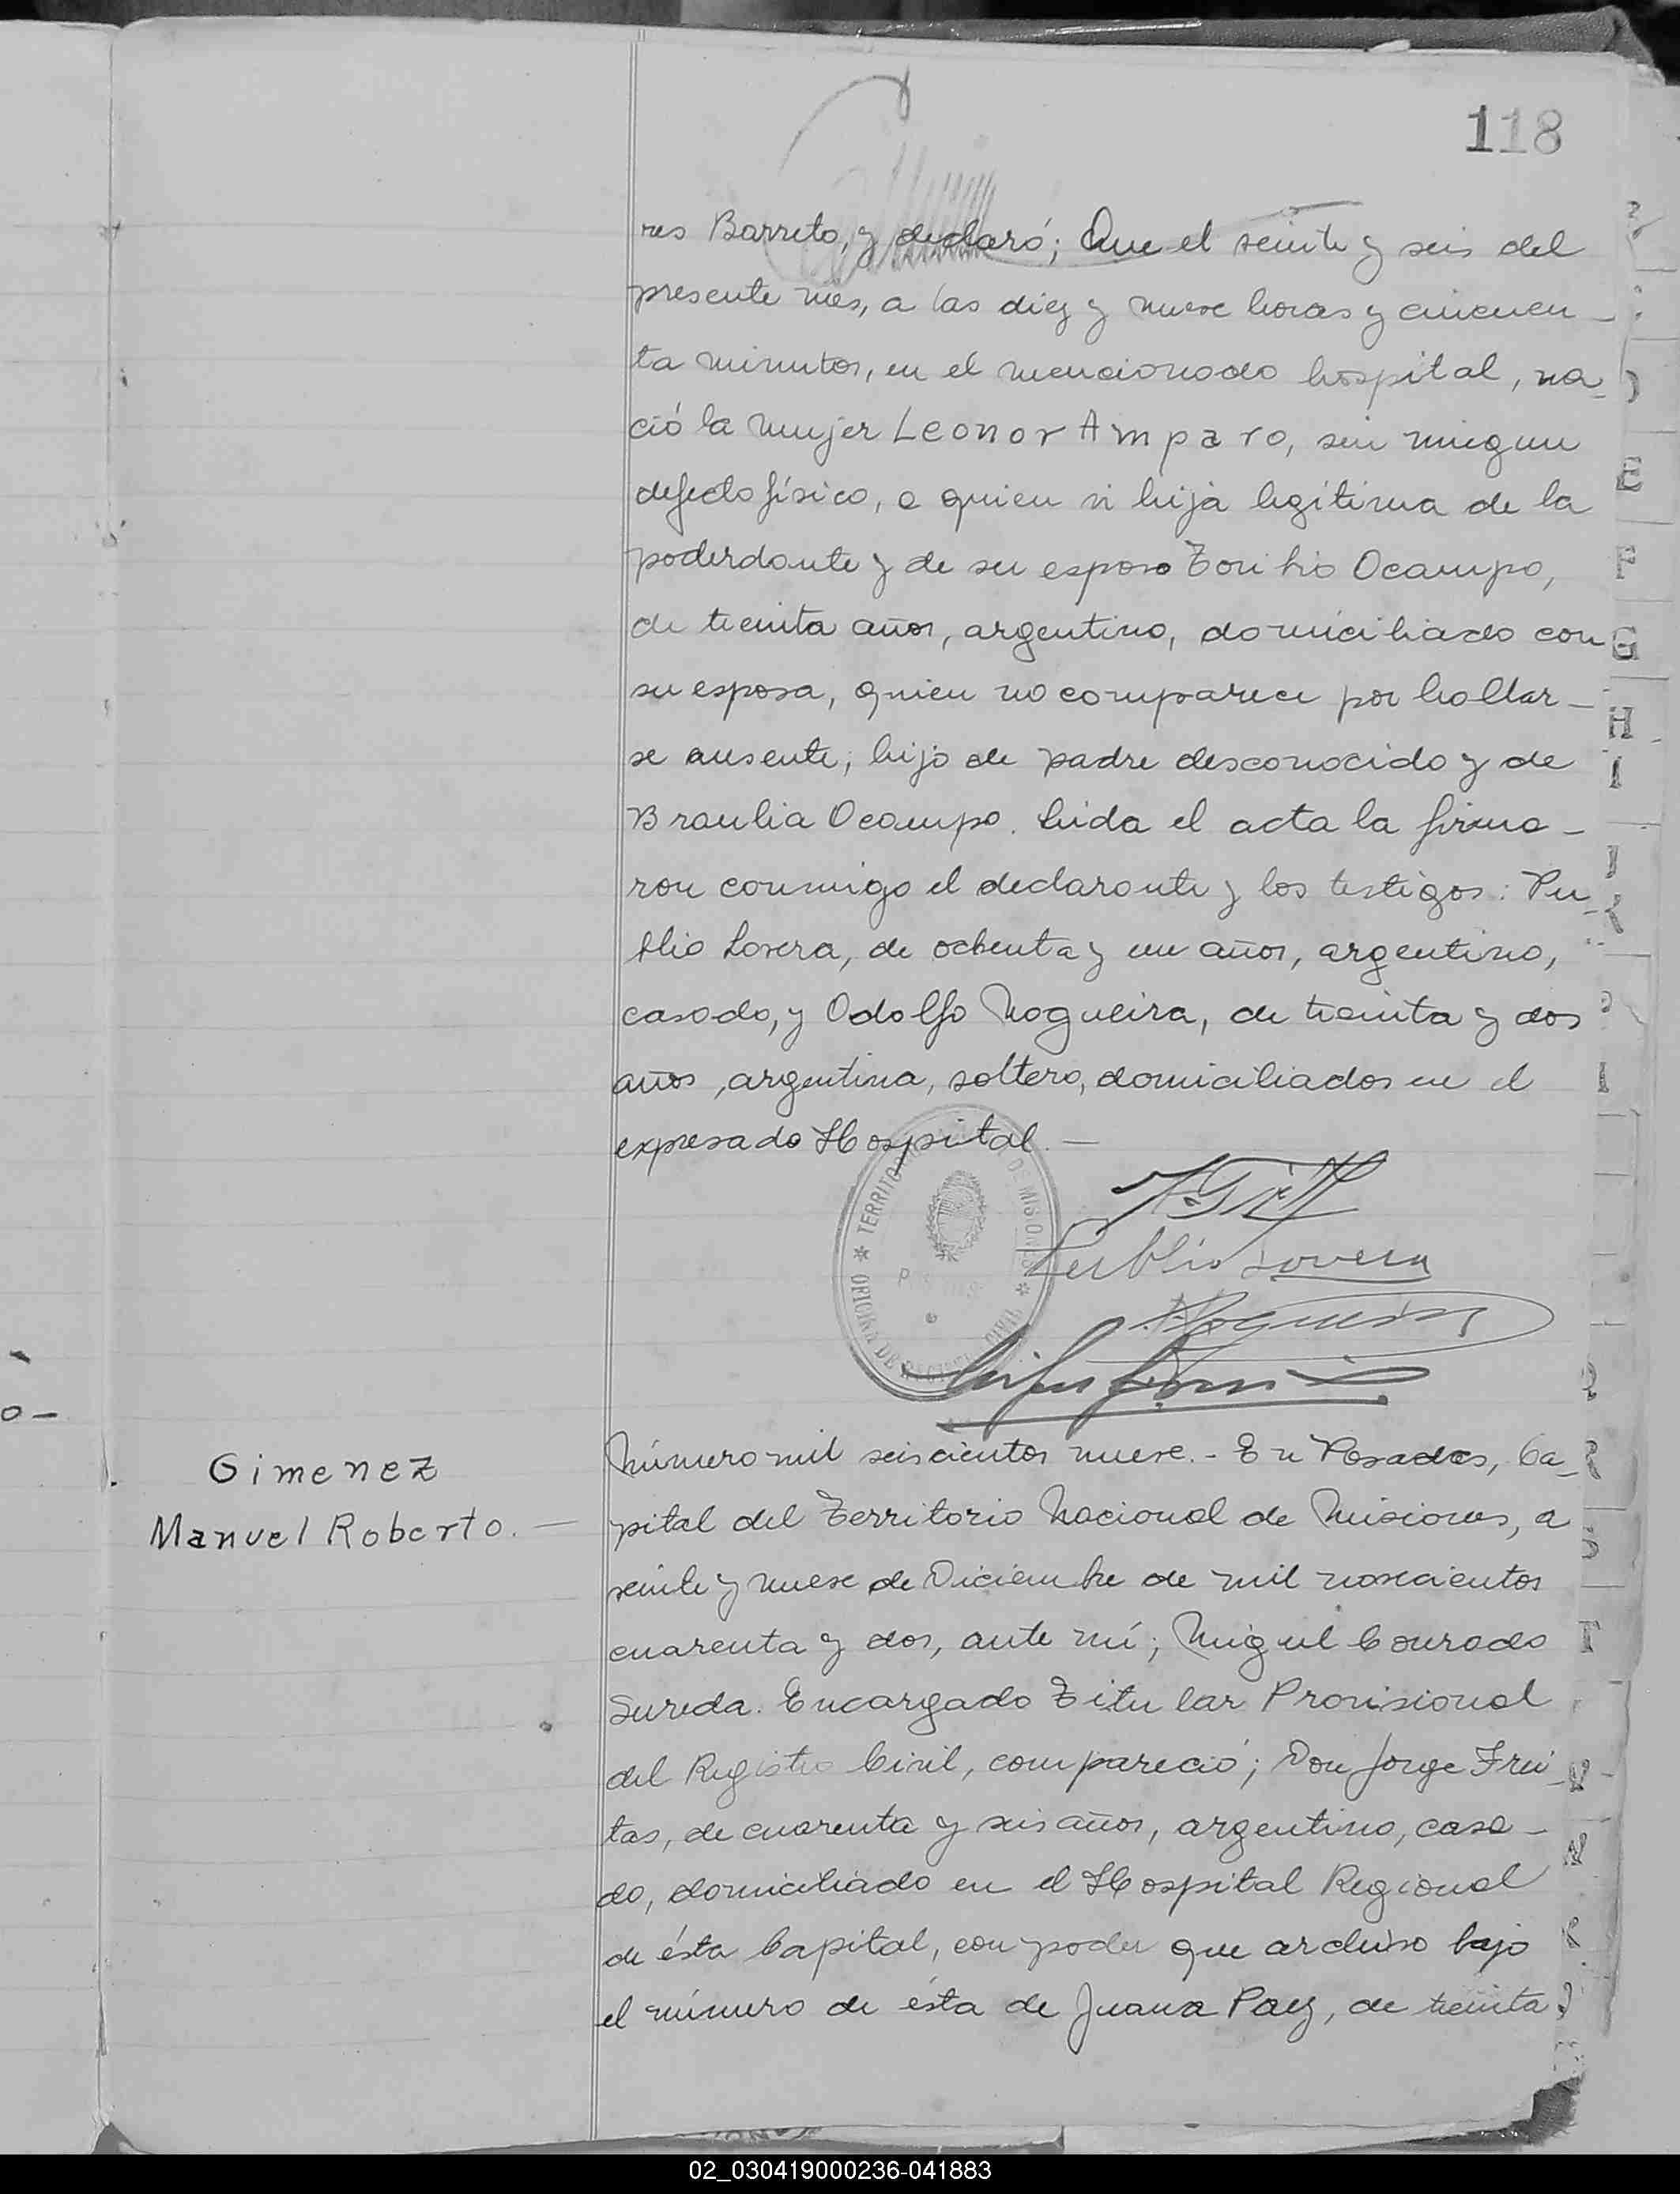 118
res Barreto, y declaró; Que el veinte y seis del
presente mes, a las diez y nueve horas y cincuen-
ta minutos, en el mencionado hospital, na-
ció la mujer Leonor Amparo, sin ningun
defecto físico, a quien vi hija legítima de la
poderdante y de su esposo Toribio Ocampo,
de treinta años, argentino, domiciliado con
su esposa, quien no comparece por hallar-
se ausente; hijo de padre desconocido y de
Braulia Ocampo. Leida el acta la firma-
ron conmigo el declarante y los testigos: Pu-
blio Lovera, de ochenta y un años, argentino,
casado, y Odolfo Nogueira, de treinta y dos
años, argentina, soltero, domiciliados en el
expresado Hospital. —
TERRITO DE MISIONES
OFICINA DE CIVIL
Publio Lovera
Nogueira
Gimenez
Manuel Roberto. —
Número mil seiscientos nueve.- En Posadas, Ca-
pital del Territorio Nacional de Misiones, a
veinte y nueve de Diciembre de mil novecientos
cuarenta y dos, ante mí; Miguel Conrado
Sureda. Encargado Titular Provisional
del Registro Civil, compareció; Don Jorge Frei-
tas, de cuarenta y seis años, argentino, casa-
do, domiciliado en el Hospital Regional
de ésta Capital, con poder que archivo bajo
el número de ésta de Juana Paez, de treinta
E
F
G
H
I
02_030419000236-041883